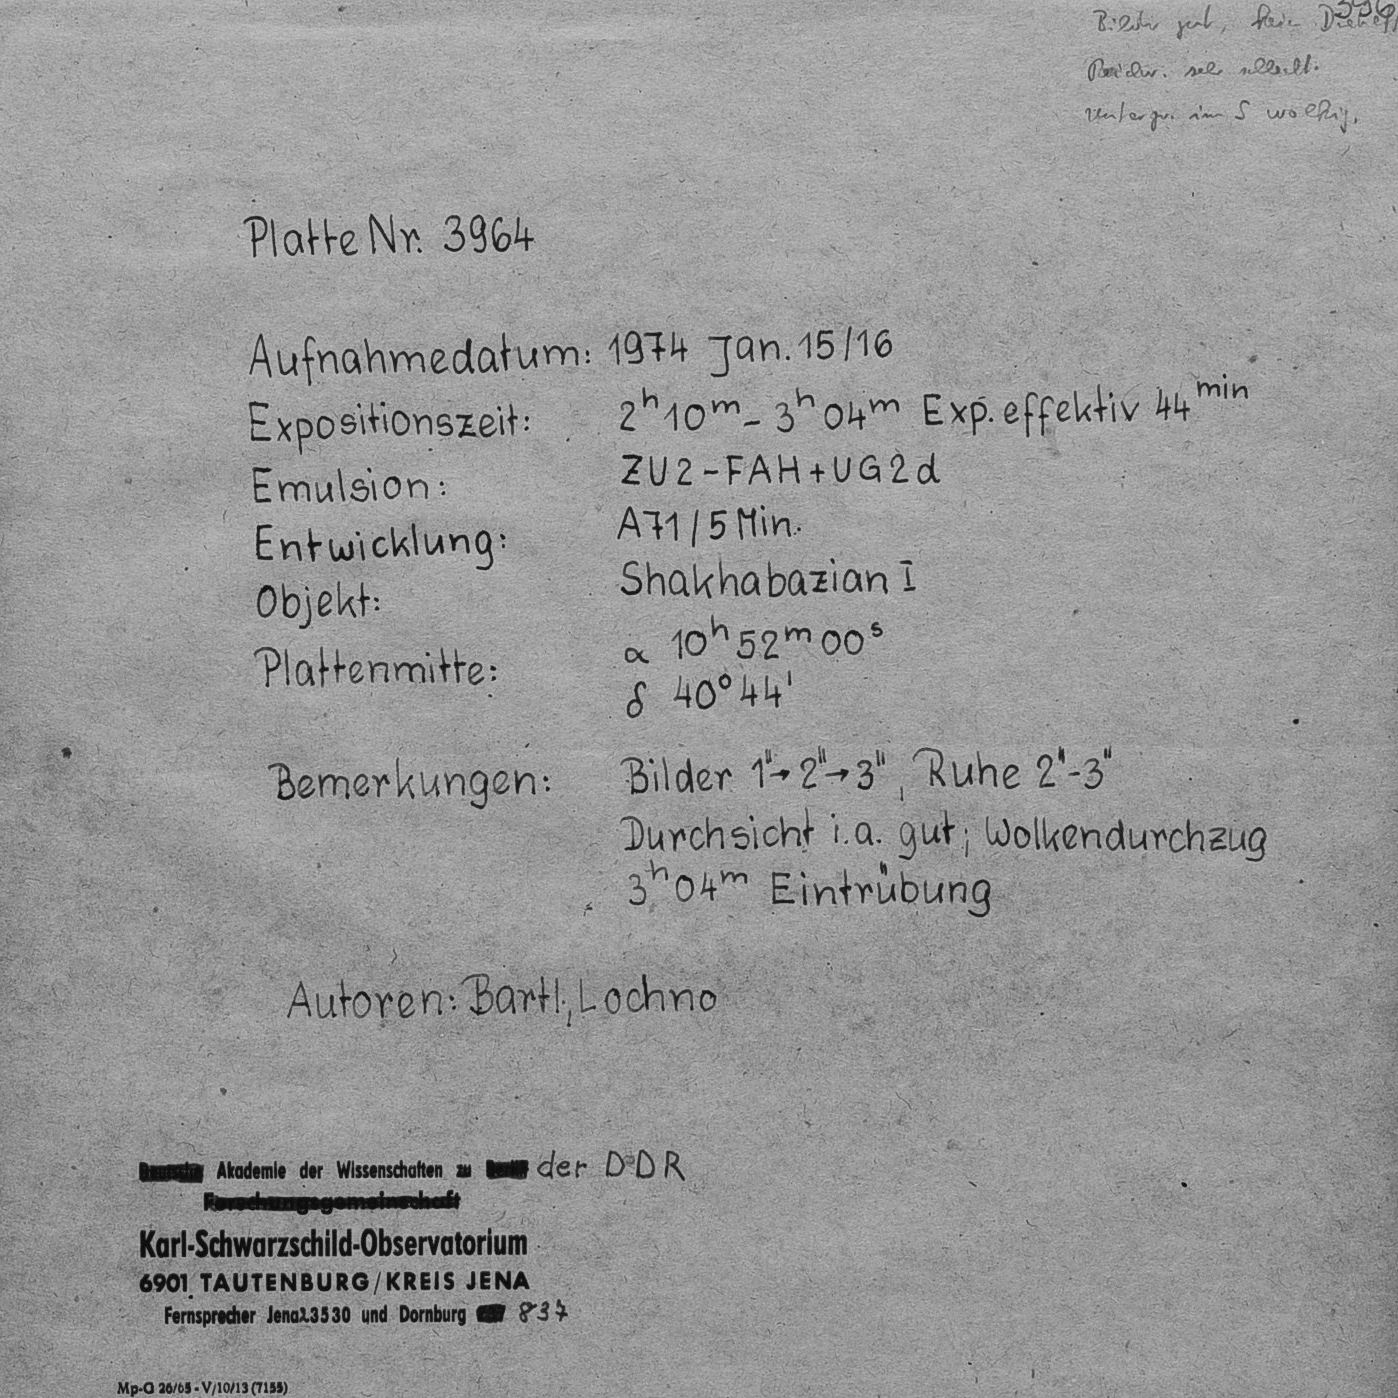 Bilder gut, kein
sehr schlecht.
Untergr. im S wolkig.
Platte Nr. 3964
Aufnahmedatum: 1974 Jan. 15/16
Expositionszeit: 2ʰ10ᵐ – 3ʰ04ᵐ Exp. effektiv 44ᵐⁱⁿ
Emulsion: ZU2-FAH+UG2d
Entwicklung: A71/5 Min.
Objekt: Shakhabazian I
Plattenmitte: α 10ʰ52ᵐ00ˢ
δ 40°44'
Bemerkungen: Bilder 1"→2"→3", Ruhe 2"-3"
Durchsicht i.a. gut; Wolkendurchzug
3ʰ04ᵐ Eintrübung
Autoren: Bartl, Lochno
Akademie der Wissenschaften zu der DDR
Forschungsgemeinschaft
Karl-Schwarzschild-Observatorium
6901 TAUTENBURG/KREIS JENA
Fernsprecher Jena 23530 und Dornburg 837
Mp-G 26/65 - V/10/13 (7155)